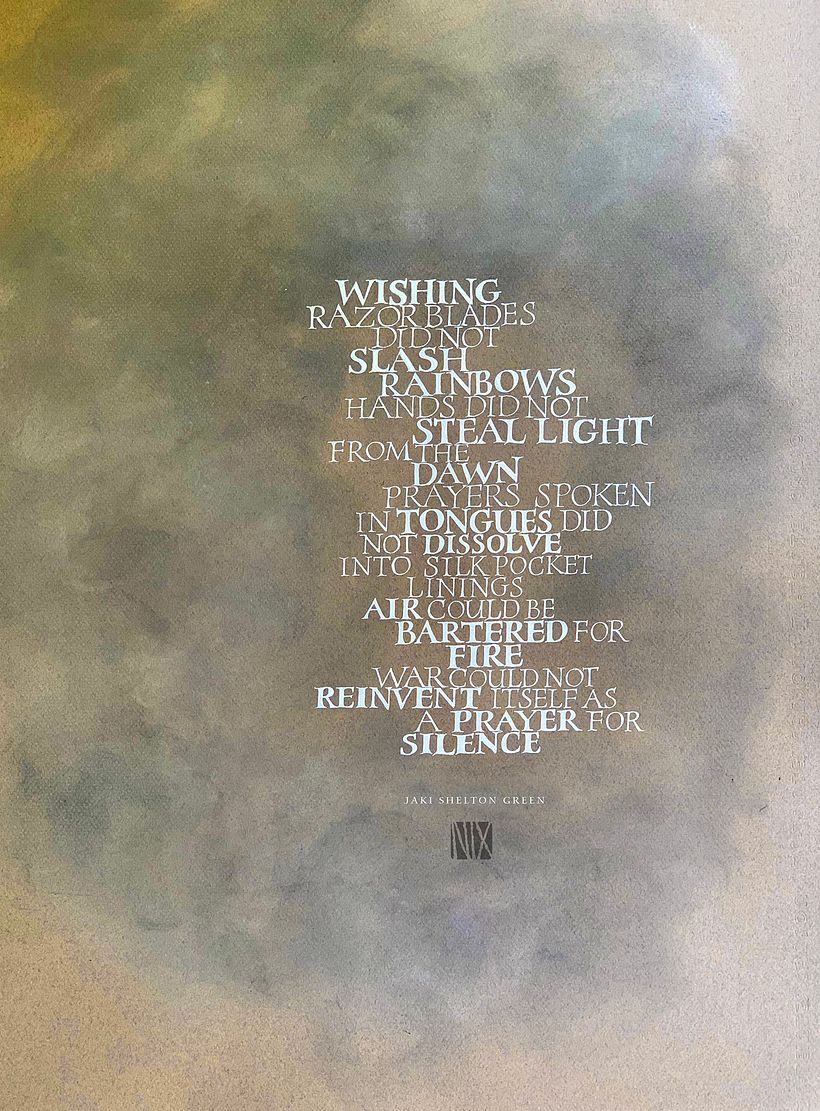 WISHING
RAZOR BLADES
DID NOT
SLASH
RAINBOWS
HANDS DID NOT
STEAL LIGHT
FROM THE
DAWN
PRAYERS SPOKEN
IN TONGUES DID
NOT DISSOLVE
INTO SILK POCKET
LININGS
AIR COULD BE
BARTERED FOR
FIRE
WAR COULD NOT
REINVENT ITSELF AS
A PRAYER FOR
SILENCE
JAKI SHELTON GREEN
NIX